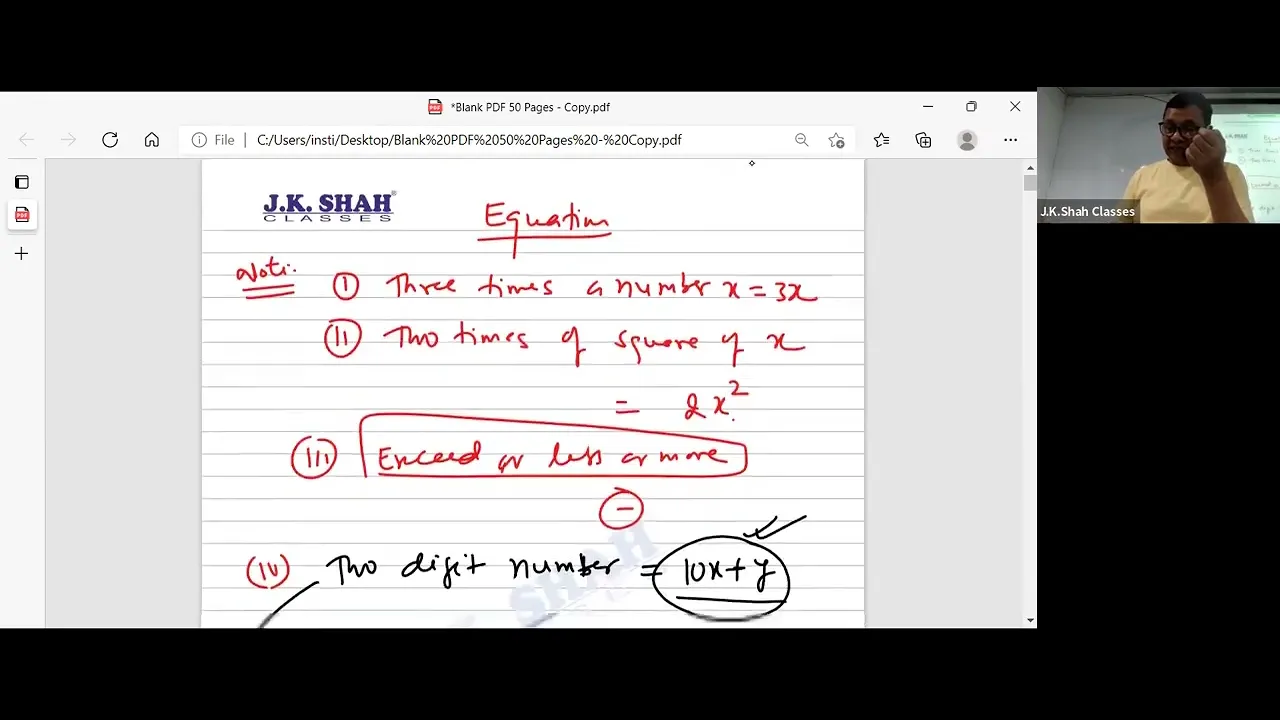 *Blank PDF 50 Pages - Copy.pdf
File C:/Users/insti/Desktop/Blank%20PDF%2050%20Pages%20-%20Copy.pdf
J.K.Shah Classes
J.K. SHAH®
CLASSES
Equation
Note:
(I) Three times a number x = 3x
(II) Two times of square of x
= 2x²
(III) Exceed or less or more
-
(IV) Two digit number = 10x + y
SHAH